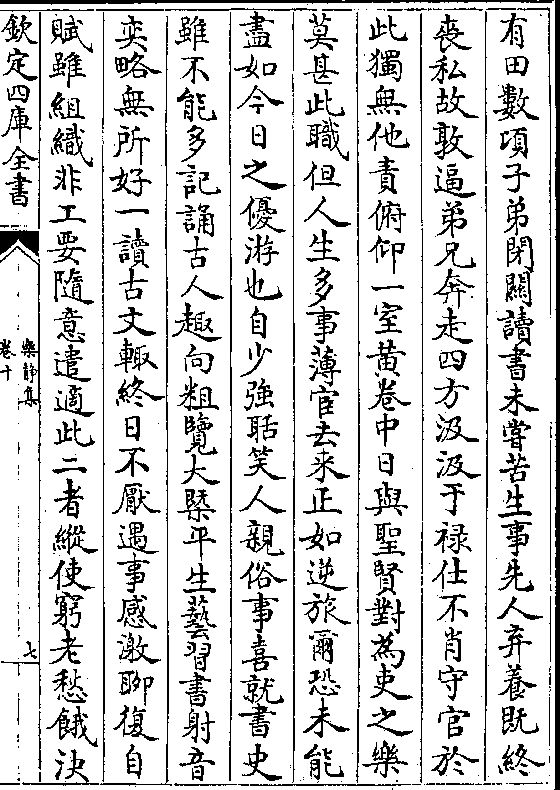 有田數項子弟閉關讀書未嘗苦生事先人弃養既終
喪私故敦逼弟兄奔走四方汲汲于禄仕不肖守官於
此獨無他責俯仰一室黄卷中日與聖賢對為吏之樂
莫甚此職但人生多事薄宦去来正如逆旅爾恐未能
盡如今日之優游也自少強聒笑人親俗事喜就書史
雖不能多記誦古人趣向粗覽大槩平生藝習書射音
奕略無所好一讀古文輙終日不厭遇事感激聊復自
賦雖組織非工要隨意遣適此二者縱使窮老愁餓決
欽定四庫全書
樂静集
卷十
七